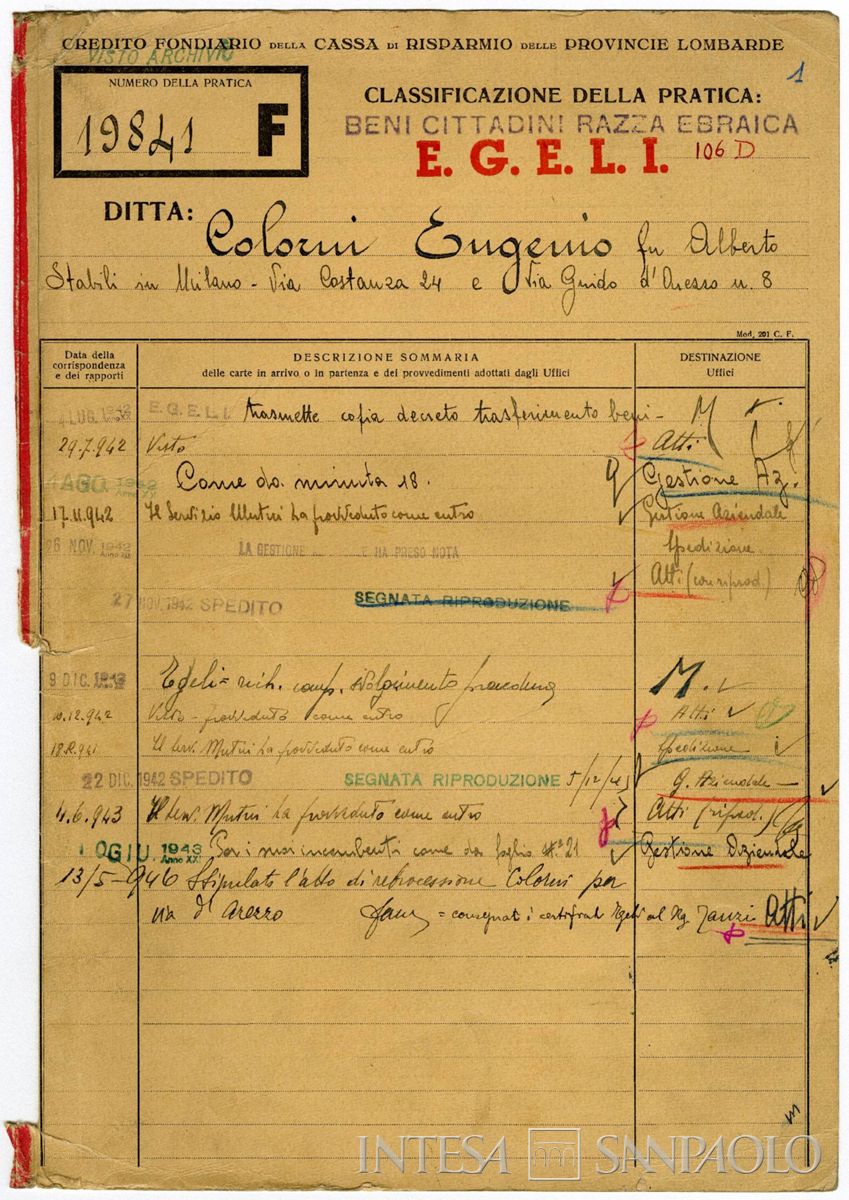 CREDITO FONDIARIO DELLA CASSA DI RISPARMIO DELLE PROVINCIE LOMBARDE
VISTO ARCHIVIO
NUMERO DELLA PRATICA
19841 F
1
CLASSIFICAZIONE DELLA PRATICA:
BENI CITTADINI RAZZA EBRAICA
E. G. E. L. I. 106 D
DITTA: Colorni Eugenio fu Alberto
Stabili in Milano - Via Costanza 24 e Via Guido d'Arezzo n. 8
Mod. 201 C. F.
Data della corrispondenza e dei rapporti
DESCRIZIONE SOMMARIA
delle carte in arrivo o in partenza e dei provvedimenti adottati dagli Uffici
DESTINAZIONE
Uffici
4 LUG. 1942 E.G.E.L.I. trasmette copia decreto trasferimento beni - M
29.7.942 Visto Atti
AGO 1942 Anno XX Come da minuta 18. Gestione Az.
17.11.942 Il Servizio Mutui ha provveduto come entro Gestione Aziendale
26 NOV. 1942 LA GESTIONE HA PRESO NOTA Spedizione
Atti (con riprod.)
27 NOV. 1942 SPEDITO SEGNATA RIPRODUZIONE
9 DIC. 1942 Egeli = rich. comp. svolgimento procedura M.
10.12.942 Visto - provveduto come entro Atti
Il Serv. Mutui ha provveduto come entro Spedizione
22 DIC. 1942 SPEDITO SEGNATA RIPRODUZIONE G. Aziendale
4.6.943 Il Serv. Mutui ha provveduto come entro Atti (riprod.)
10 GIU. 1943 Anno XXI Per i suoi incombenti come da foglio N° 21 Gestione Aziendale
13/5-946 Stipulato l'atto di retrocessione Colorni per
via d'Arezzo = consegnati i certificati Egeli al Rg. Atti
INTESA SANPAOLO